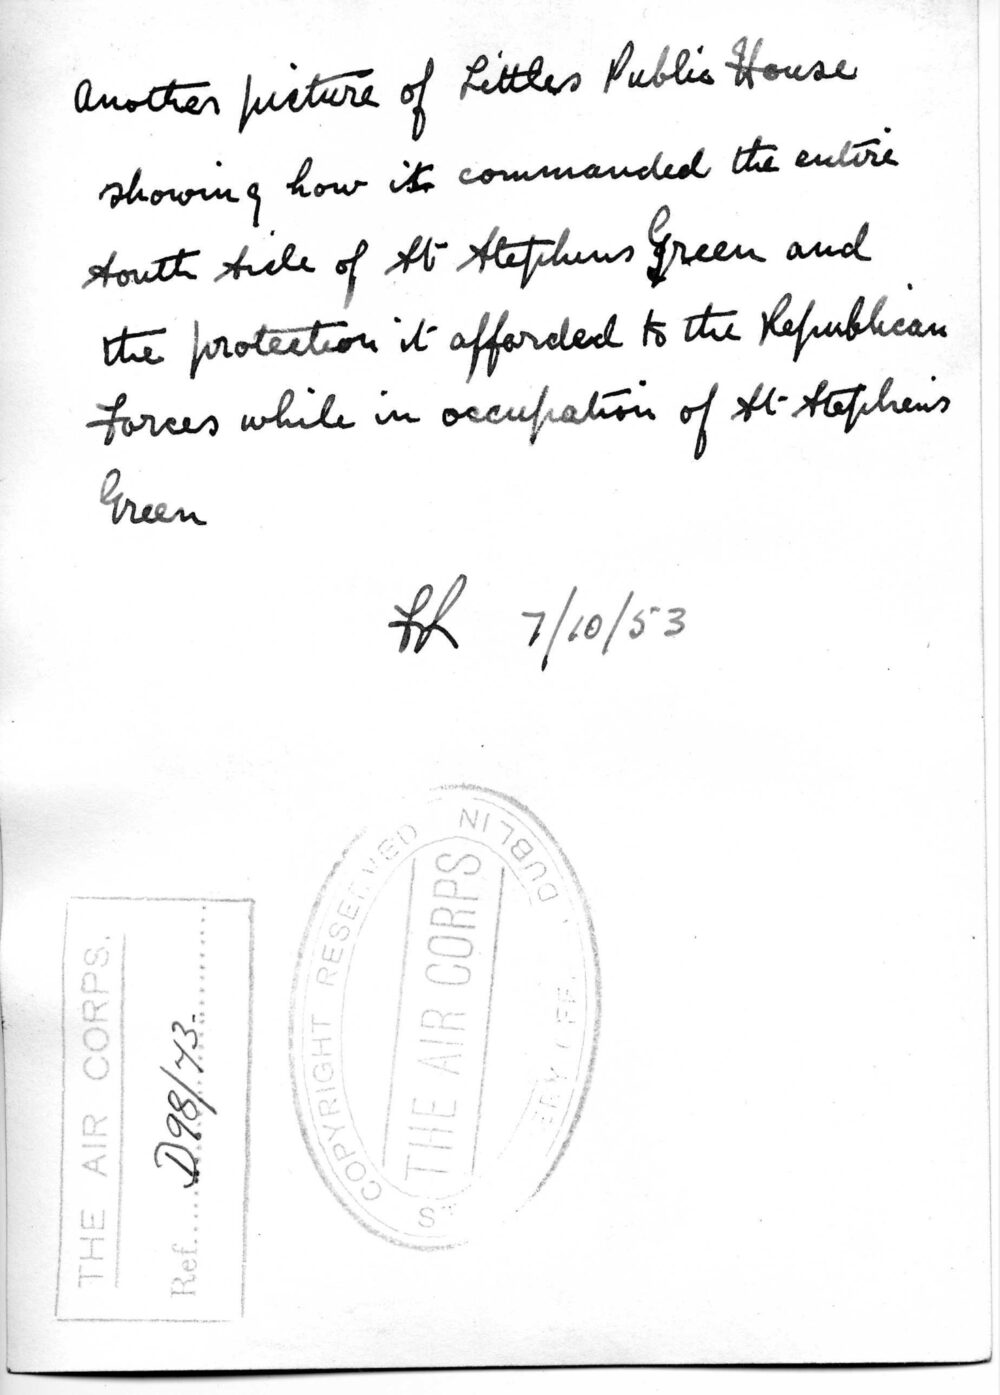 Another picture of Littles Public House
showing how it commanded the entire
South Side of St Stephens Green and
the protection it afforded to the Republican
Forces while in occupation of St Stephens
Green
7/10/53
THE AIR CORPS.
Ref. D98/73
COPYRIGHT RESERVED
THE AIR CORPS
DUBLIN